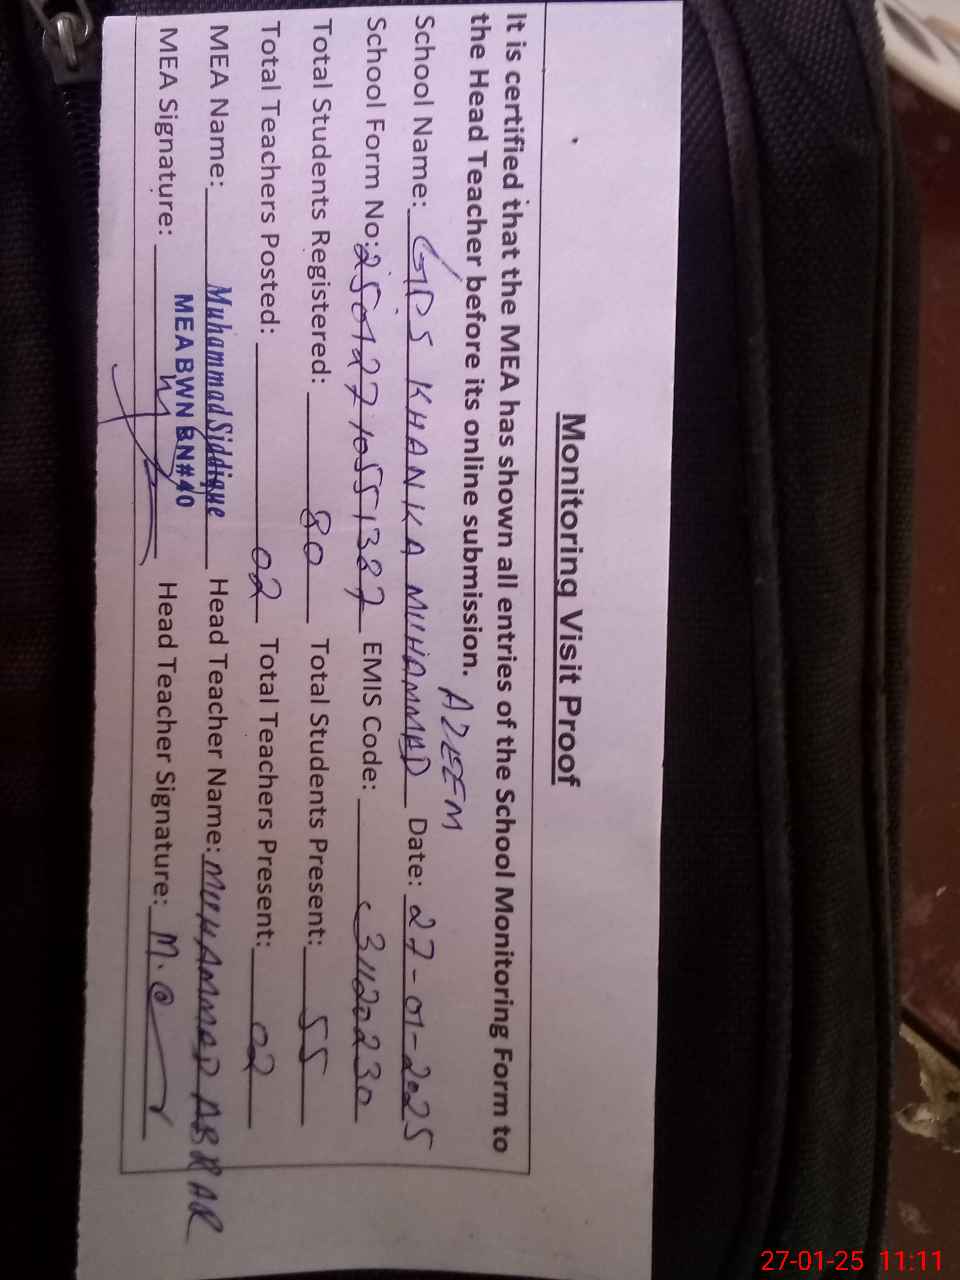 Monitoring Visit Proof
It is certified that the MEA has shown all entries of the School Monitoring Form to
the Head Teacher before its online submission.
School Name: GPS KHANKA MUHAMMAD AZEEM Date: 27-01-2025
School Form No: 250127 10551387 EMIS Code: 31120230
Total Students Registered: 80 Total Students Present: 55
Total Teachers Posted: 02 Total Teachers Present: 02
MEA Name: Muhammad Siddique Head Teacher Name: MUHAMMAD ABRAR
MEA BWN BN#40
MEA Signature: Head Teacher Signature:
27-01-25 11:11